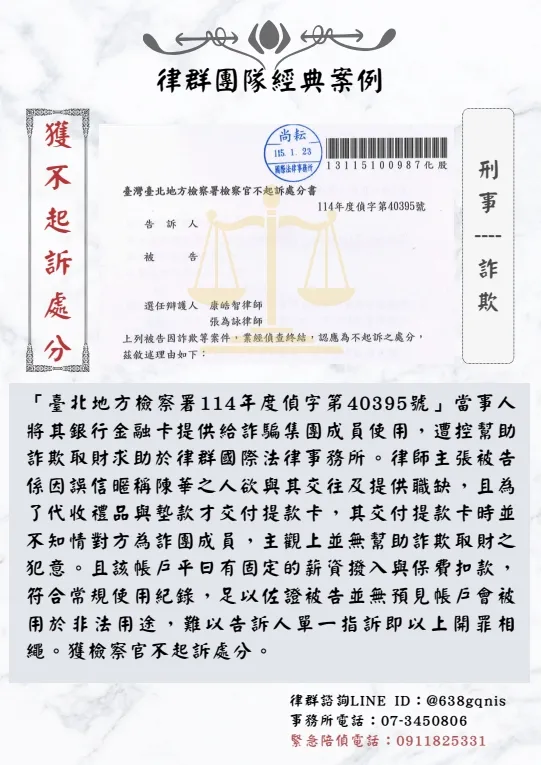 律群團隊經典案例
獲不起訴處分
尚耘
115.1.23
國際法律事務所
13115100987化股
臺灣臺北地方檢察署檢察官不起訴處分書
114年度偵字第40395號
告訴人
被告
選任辯護人 康皓智律師
張為詠律師
上列被告因詐欺等案件，業經偵查終結，認應為不起訴之處分，
茲敘述理由如下：
刑事----詐欺
「臺北地方檢察署114年度偵字第40395號」當事人
將其銀行金融卡提供給詐騙集團成員使用，遭控幫助
詐欺取財求助於律群國際法律事務所。律師主張被告
係因誤信暱稱陳華之人欲與其交往及提供職缺，且為
了代收禮品與墊款才交付提款卡，其交付提款卡時並
不知情對方為詐團成員，主觀上並無幫助詐欺取財之
犯意。且該帳戶平日有固定的薪資撥入與保費扣款，
符合常規使用紀錄，足以佐證被告並無預見帳戶會被
用於非法用途，難以告訴人單一指訴即以上開罪相
繩。獲檢察官不起訴處分。
律群諮詢LINE ID：@638gqnis
事務所電話：07-3450806
緊急陪偵電話：0911825331